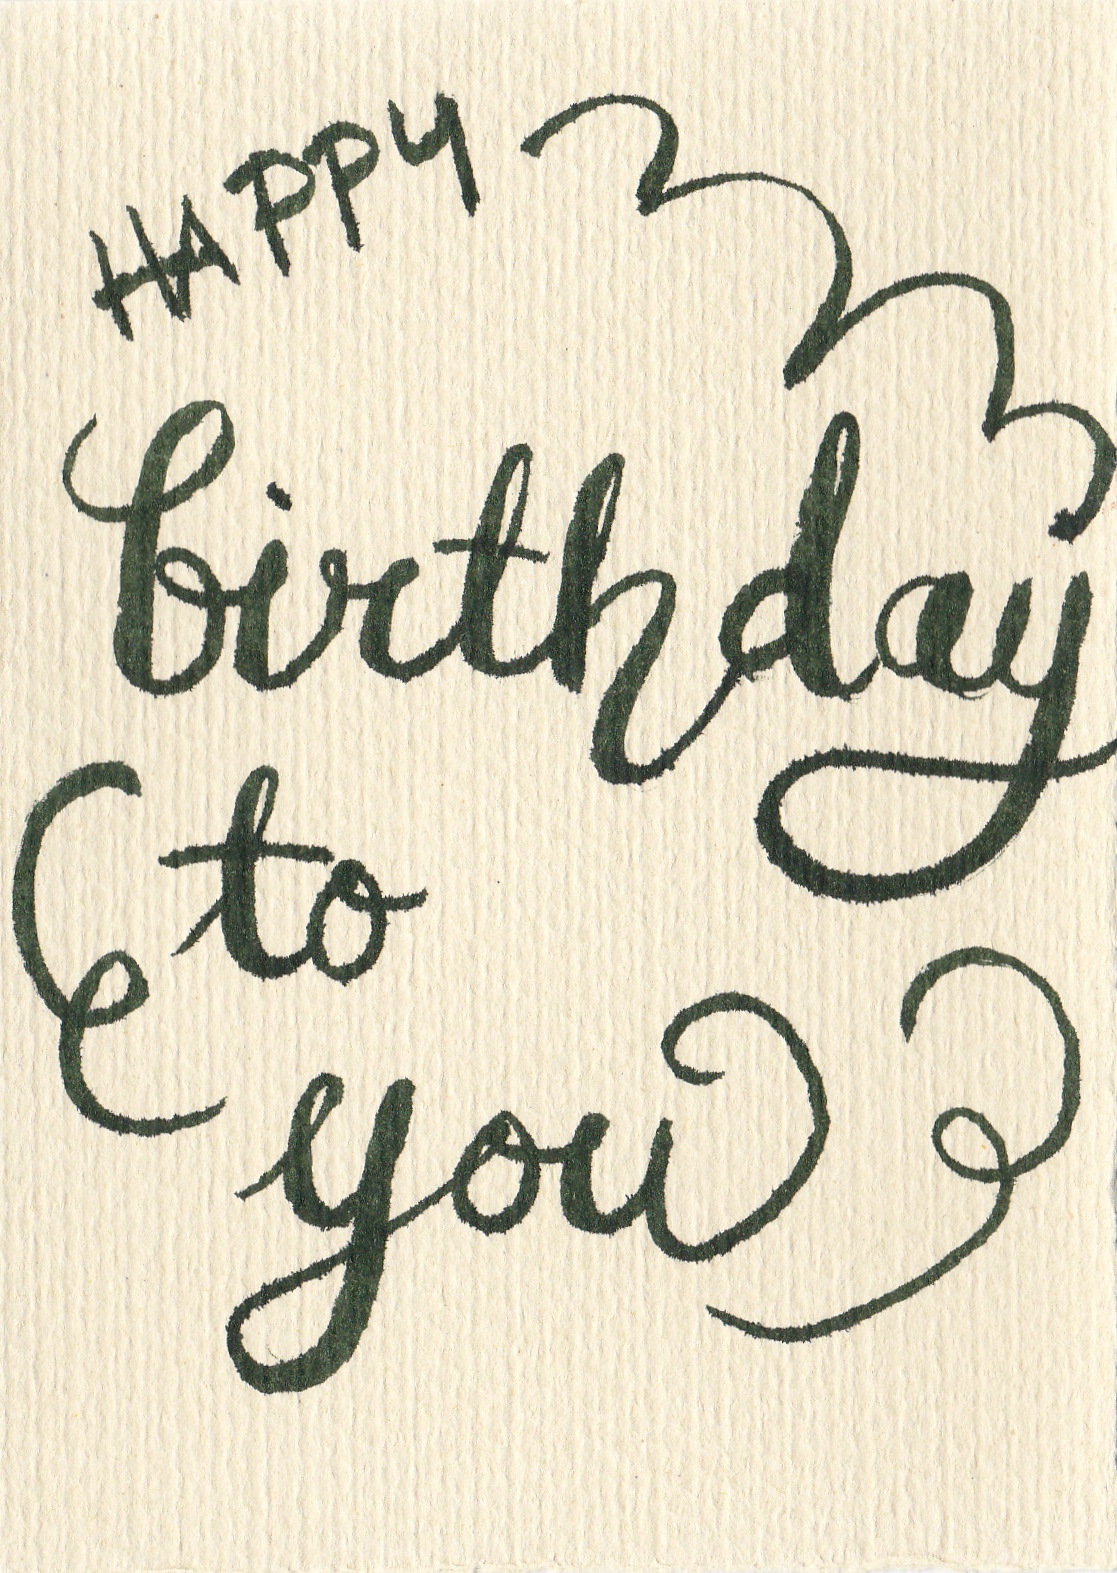 HAPPY
birthday
to
you